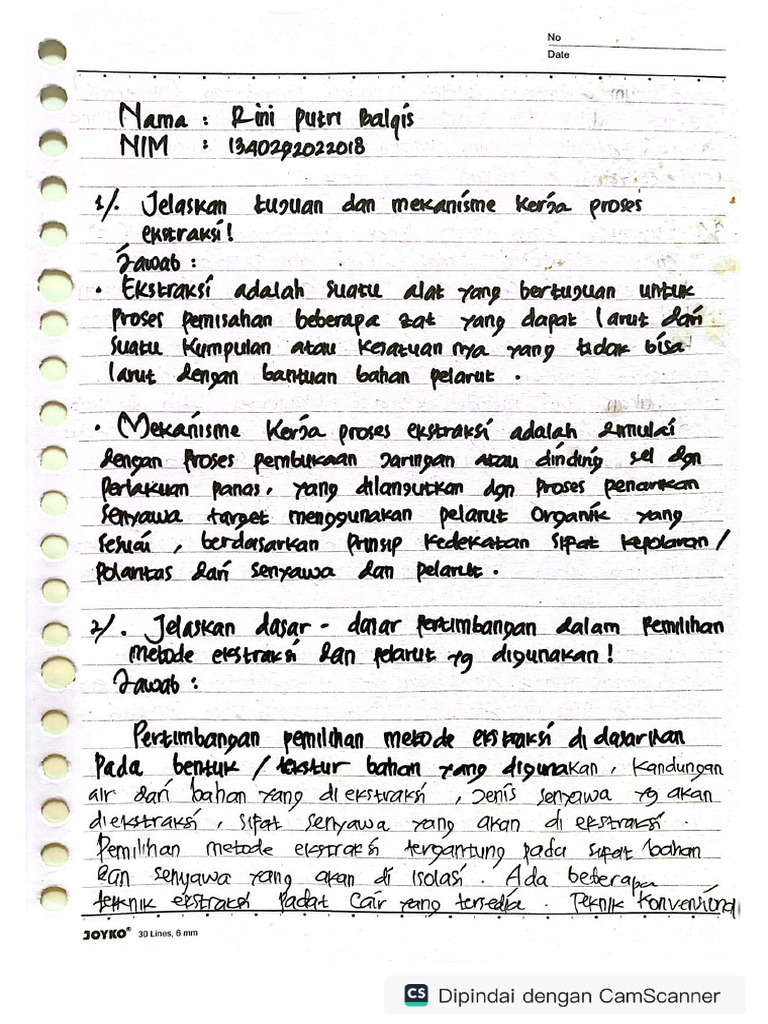 No
Date
Nama : Rini Putri Balqis
NIM : 1340292022018
1/. Jelaskan tujuan dan mekanisme kerja proses
ekstraksi!
Jawab :
• Ekstraksi adalah suatu alat yang bertujuan untuk
proses pemisahan beberapa zat yang dapat larut dari
suatu kumpulan atau kesatuan nya yang tidak bisa
larut dengan bantuan bahan pelarut .
• Mekanisme kerja proses ekstraksi adalah dimulai
dengan proses pembukaan jaringan atau dinding sel dgn
perlakuan panas, yang dilanjutkan dgn proses penarikan
senyawa target menggunakan pelarut organik yang
sesuai , berdasarkan prinsip kedekatan sifat kepolaran /
polaritas dari senyawa dan pelarut .
2/. Jelaskan dasar - dasar pertimbangan dalam pemilihan
metode ekstraksi dan pelarut yg digunakan !
Jawab :
Pertimbangan pemilihan metode ekstraksi di dasarikan
pada bentuk / tekstur bahan yang digunakan , kandungan
air dari bahan yang di ekstraksi , jenis senyawa yg akan
diekstraksi , sifat senyawa yang akan di ekstraksi .
Pemilihan metode ekstraksi tergantung pada sifat bahan
dan senyawa yang akan di isolasi . Ada beberapa
teknik ekstraksi padat cair yang tersedia . Teknik konvensional
JOYKO® 30 Lines, 6 mm
CS Dipindai dengan CamScanner